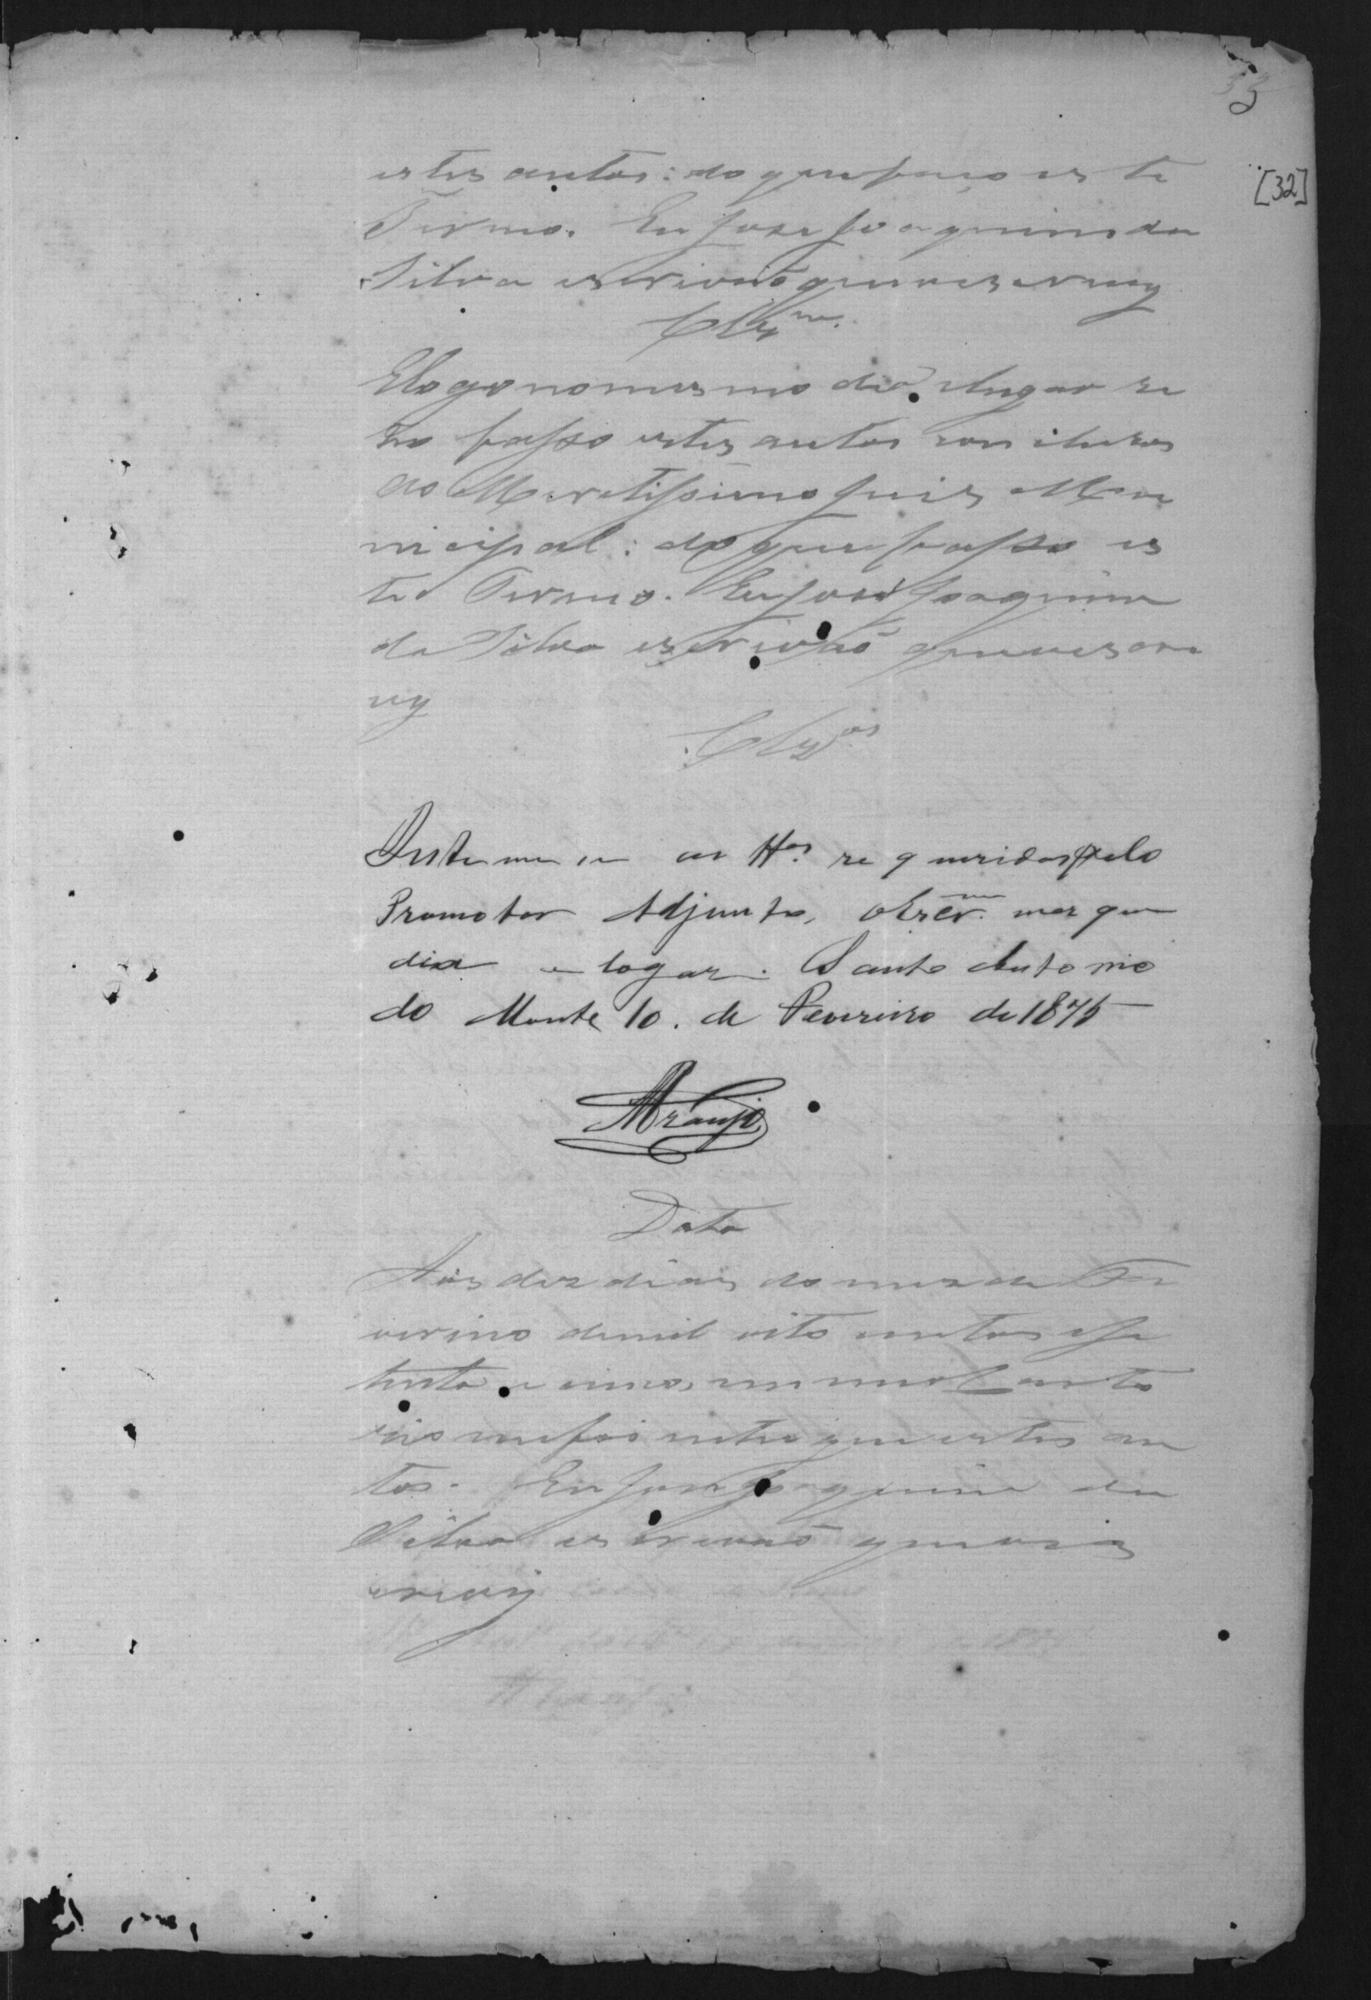 33
[32]
estes autos: do que faço este
Termo. Eu José Joaquim da
Silva escrivão que o escrevy
Clzm.
E logo no mesmo dia e lugar re
tro fasso estes autos concluzos
ao Meretissimo Juis Mu
nicipal: do que fasso es
te Termo. Eu José Joaquim
da Silva escrivão que o escre
vy
Clzos
Inteme se as Tas requeridas pelo
Promotor Adjunto, o Escrm marque
dia e logar. Santo Antonio
do Monte 10. de Fevereiro de 1875
Araujo
Data
Aos dez dias do mez de Fe
vereiro de mil oito centos e se
tenta e cinco, em meo Carto
rio me foi entregue estes au
tos. Eu José Joaquim da
Silva escrivão que o es
crevy